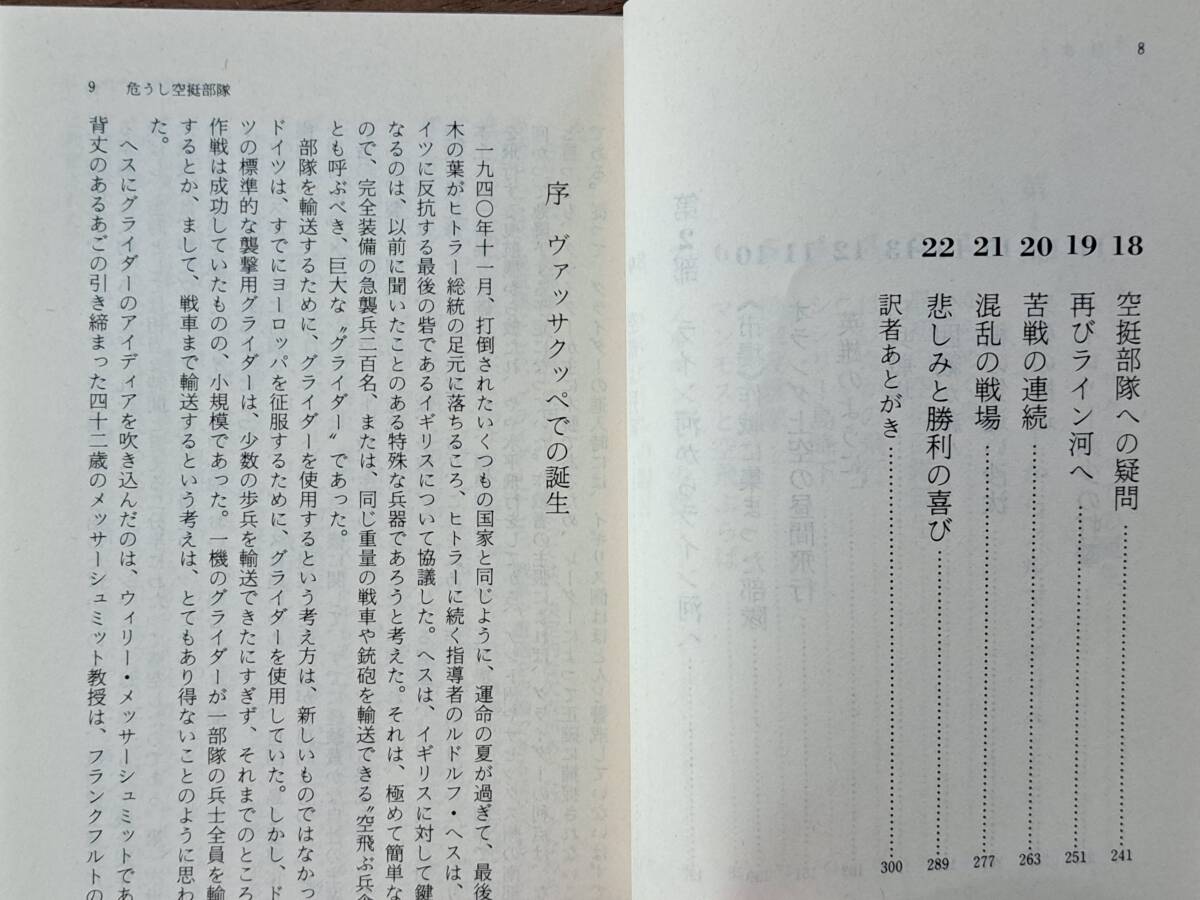 8
18 空挺部隊への疑問 241
19 再びライン河へ 251
20 苦戦の連続 263
21 混乱の戦場 277
22 悲しみと勝利の喜び 289
訳者あとがき 300
9 危うし空挺部隊
序 ヴァッサクッペでの誕生
一九四〇年十一月、打倒されたいくつもの国家と同じように、運命の夏が過ぎて、最後
木の葉がヒトラー総統の足元に落ちるころ、ヒトラーに続く指導者のルドルフ・ヘスは、
イツに反抗する最後の砦であるイギリスについて協議した。ヘスは、イギリスに対して鍵
なるのは、以前に聞いたことのある特殊な兵器であろうと考えた。それは、極めて簡単な
ので、完全装備の急襲兵二百名、または、同じ重量の戦車や銃砲を輸送できる〝空飛ぶ兵
とも呼ぶべき、巨大な〝グライダー〟であった。
部隊を輸送するために、グライダーを使用するという考え方は、新しいものではなかっ
ドイツは、すでにヨーロッパを征服するために、グライダーを使用していた。しかし、ド
ツの標準的な襲撃用グライダーは、少数の歩兵を輸送できたにすぎず、それまでのところ
作戦は成功していたものの、小規模であった。一機のグライダーが一部隊の兵士全員を輸
するとか、まして、戦車まで輸送するという考えは、とてもあり得ないことのように思わ
た。
ヘスにグライダーのアイディアを吹き込んだのは、ウィリー・メッサーシュミットであ
背丈のあるあごの引き締まった四十二歳のメッサーシュミット教授は、フランクフルトの